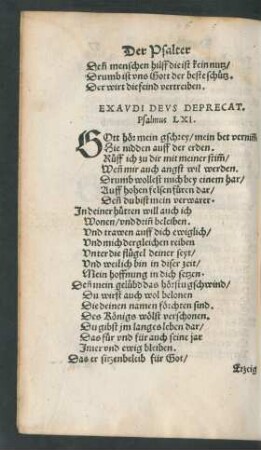 Der Psalter
Deñ menschen hilff die ist kein nutz/
Drumb ist vns Gott der beste schütz.
Der wirt die feind vertreiben.
EXAVDI DEVS DEPRECAT.
Psalmus LXI.
GOtt hör mein gschrey/ mein bet vernim̃
Hie nidden auff der erden.
Rüff ich zu dir mit meiner stim̃/
Weñ mir auch angst wil werden.
Drumb wollest mich bey einem har/
Auff hohen felsen füren dar/
Deñ du bist mein verwarer.
In deiner hütten will auch ich
Wonen/ vnd deiñ beleiben.
Vnd trawen auff dich ewiglich/
Vnd mich dergleichen reiben
Vnter die flügel deiner seyt/
Vnd weilich bin in diser zeit/
Mein hoffnung in dich setzen.
Deñ mein gelübd das hörst u gschwind/
Du wirst auch wol belonen
Die deinen namen förchten sind.
Des Königs wölst verschonen.
Du gibst jm langes leben dar/
Das für vnd für auch seine jar
Imer vnd ewig bleiben.
Das er sitzen beleib für Got/
Erzeig